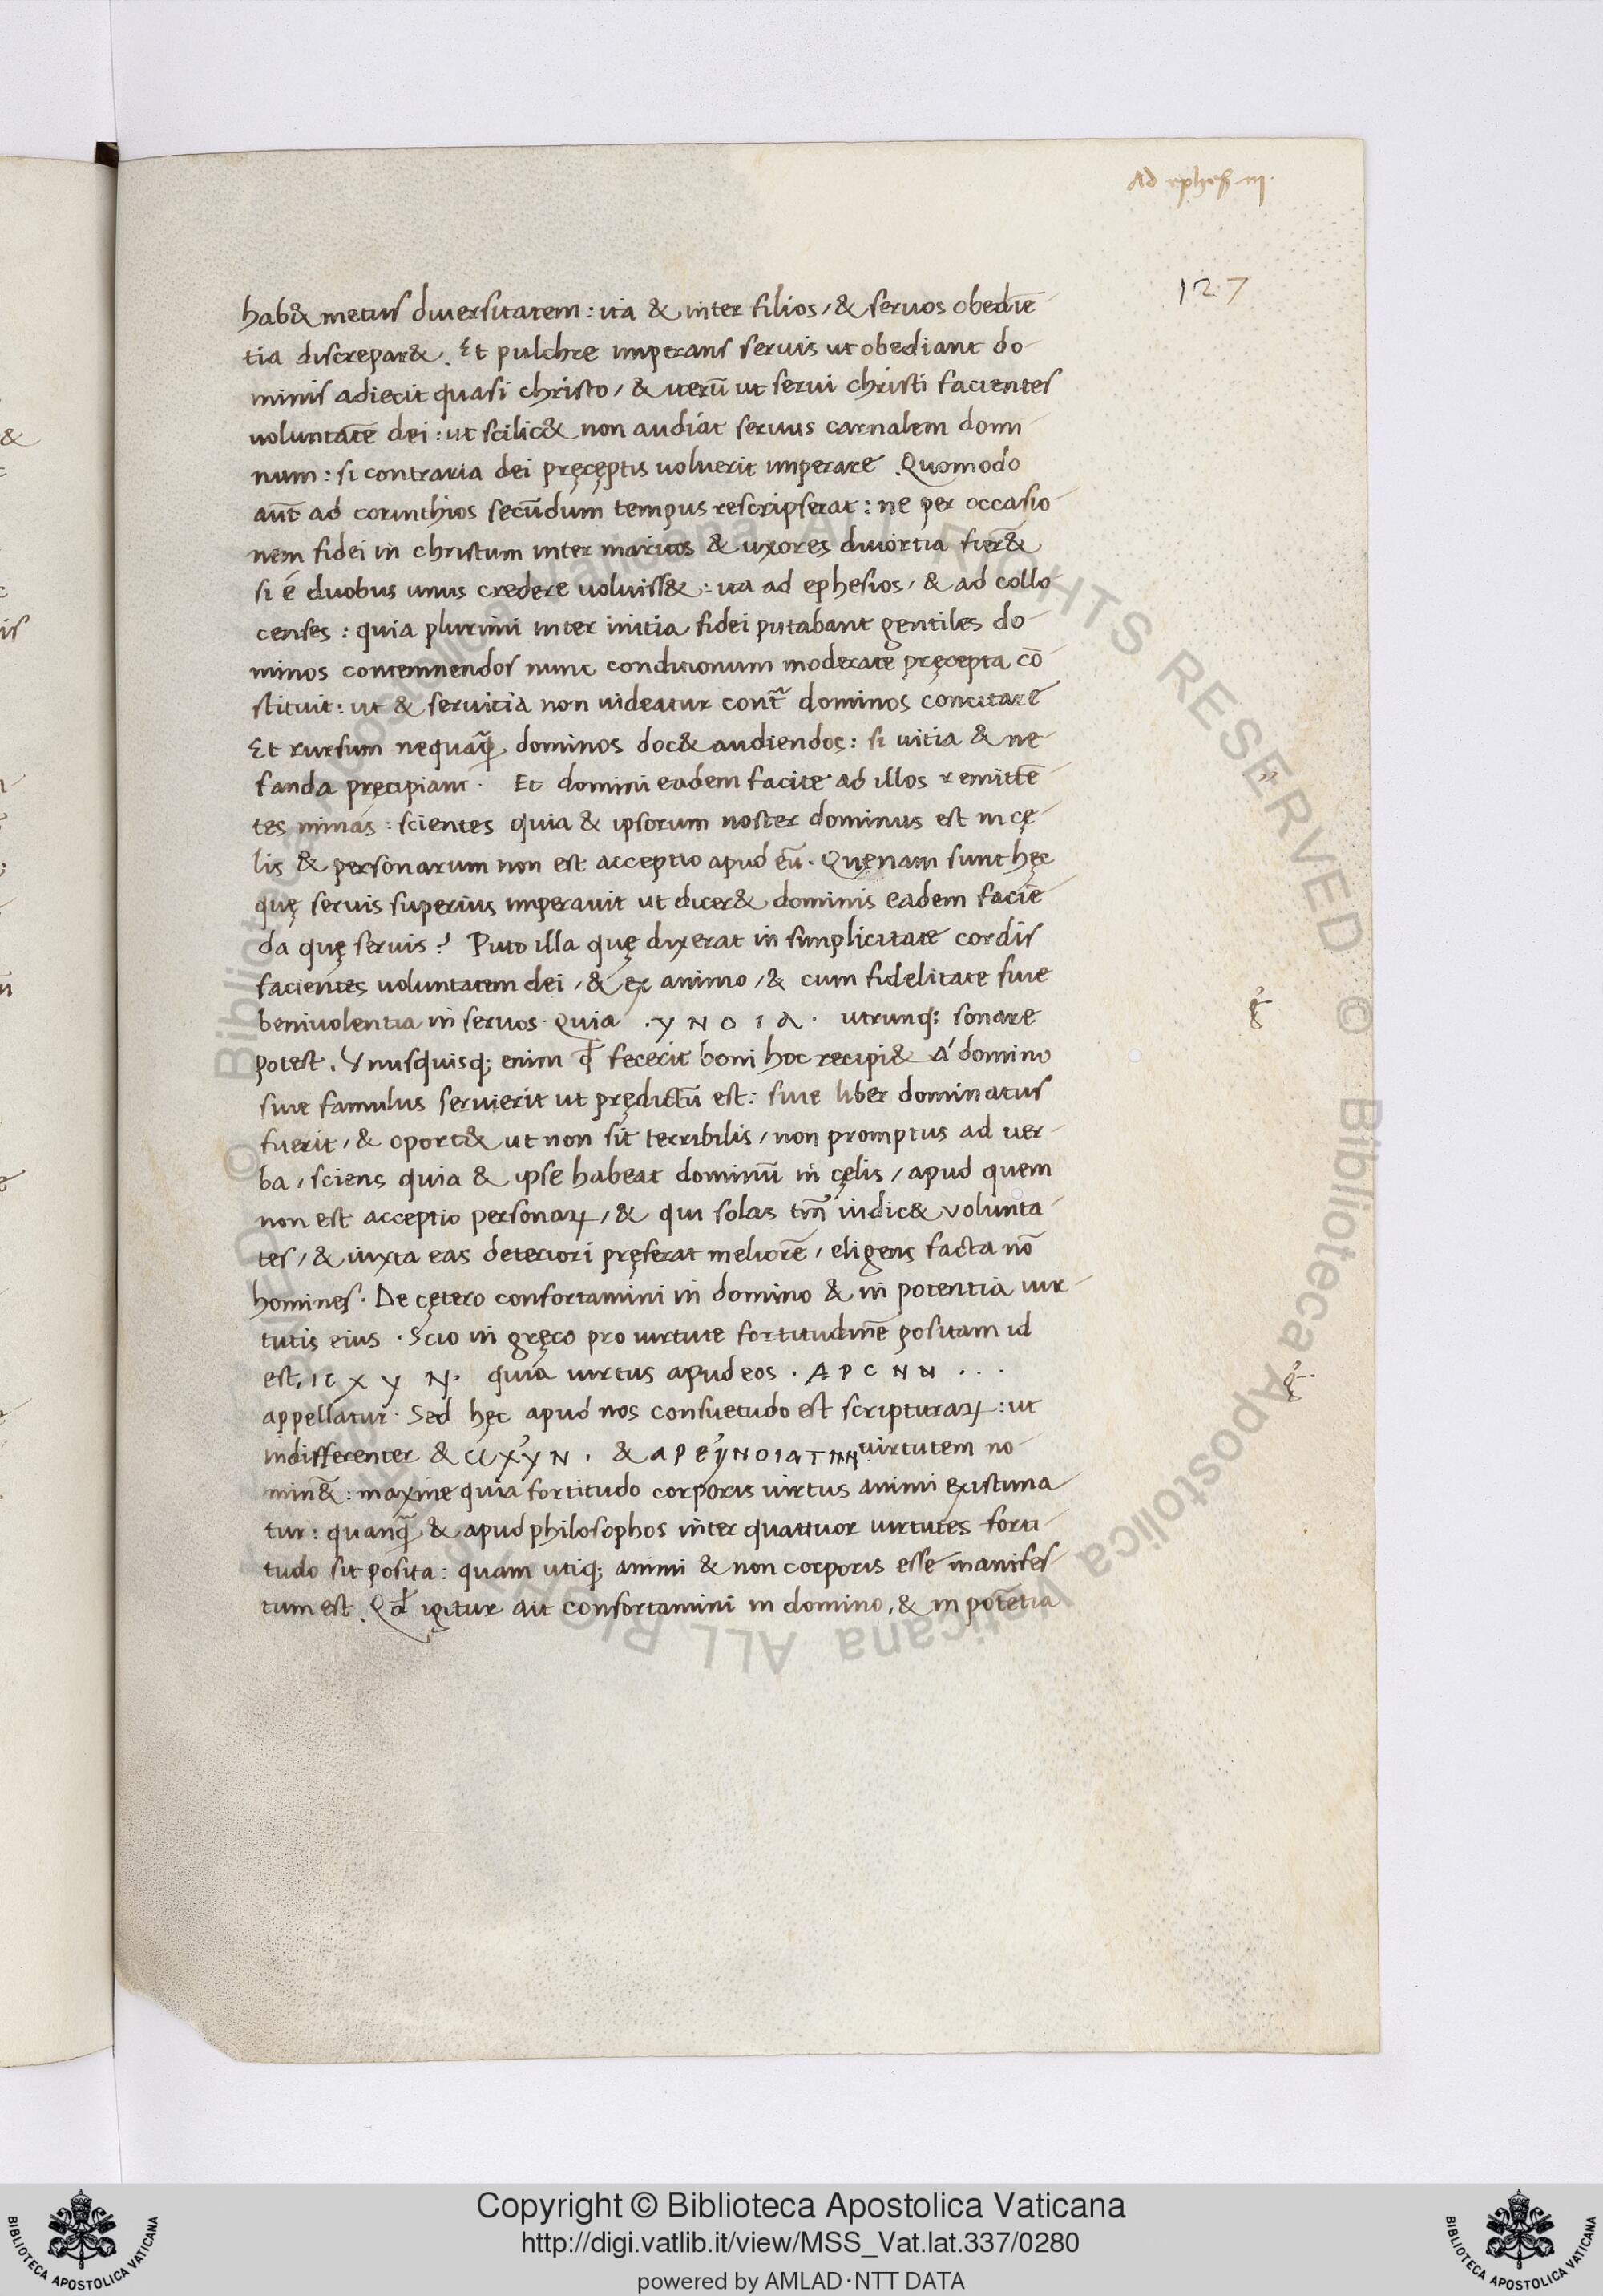 Ad ephes. III.
127
hab& metus diversitatem: ita & inter filios, & servos obediē
tia discrepar&. Et pulchre imperans servis ut obediant do
minis adiecit quasi christo, & uerū ut servi christi facientes
voluntatē dei: ut scilic& non audiat servus carnalem domi
num: si contraria dei pręcęptis voluerit imperare. Quomodo
aūt ad corinthios secūdum tempus rescripserat: ne per occasio
nem fidei in christum inter maritos & uxores divortia fier&
si é duobus unus credere voluiss&: ita ad ephesios, & ad collo
censes: quia plurimi inter initia fidei putabant gentiles do
minos contemnendos nunc condicionum moderate pręcepta cō
stituit: ut & servitia non videatur cont͂ dominos concitare
Et rursum nequaq̃, dominos doc& audiendos: si uitia & ne
fanda pręcipiant. Et domini eadem facite ad illos remittē
tes minas: scientes quia & ipsorum noster dominus est in cę
lis & personarum non est acceptio apud eū. Quęnam sunt hęc
quę servis superius imperavit ut dicer& dominis eadem faciē
da quę servis? Puto illa quę dixerat in simplicitate cordis
facientes voluntatem dei, & ex animo, & cum fidelitate sive
benivolentia in servos. Quia .Y N O I A. utrunq; sonare
potest. Vnusquisq; enim qđ fecerit boni hoc recipi& á domino
sive famulus servierit ut prędictū est: sive liber dominatus
fuerit, & oport& ut non sit terribilis, non promptus ad ver
ba, sciens quia & ipse habeat dominū in cęlis, apud quem
non est acceptio personaꝝ, & qui solas tm̄ iudic& volunta
tes, & iuxta eas deteriori pręferat meliorē, eligens facta nō
homines. De cętero confortamini in domino & in potentia vir
tutis eius. Scio in gręco pro virtute fortitudinē positam id
est, IC X Y N. quia virtus apud eos . A P C N N . . .
appellatur. Sed hęc apud nos consuetudo est scripturaꝝ: ut
indifferenter & virtutem no
min&: maxime quia fortitudo corporis virtus animi existima
tur: quanq̃ & apud philosophos inter quattuor virtutes forti
tudo sit posita: quam utiq; animi & non corporis esse manifes
tum est. Qđ igitur ait confortamini in domino, & in potētia
Copyright © Biblioteca Apostolica Vaticana
http://digi.vatlib.it/view/MSS_Vat.lat.337/0280
powered by AMLAD·NTT DATA